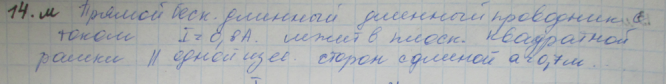 14.м Прямой беск. длинный длинный проводник с
током I = 0,8А. лежит в плоск. квадратной
рамки || одной из её сторон с длиной а = 0,7м...